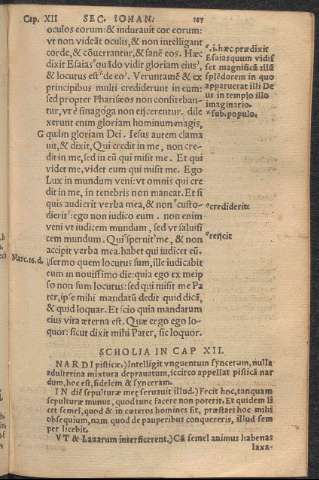 Cap. XII SEC. IOHAN. 107
oculos eorum: & indurauit cor eorum:
vt non videãt oculis, & non intelligant
corde, & cõuerrantur, & sanẽ eos. Hæc
dixit Esaias °quãdo vidit gloriam eius,
& locutus est de eo. Veruntamẽ & ex
principibus multi crediderunt in eum:
sed propter Phariseos non confiteban-
tur, vt è sinagoga non eijcerentur. dile
xerunt enim gloriam hominum magis,
G quàm gloriam Dei. Iesus autem clama
uit, & dixit, Qui credit in me, non cre-
dit in me, sed in eũ qui misit me. Et qui
videt me, videt eum qui misit me. Ego
Lux in mundum veni: vt omnis qui cre
dit in me, in tenebris non maneat. Et si
quis audierit verba mea, & non °custo-
dierit: ego non iudico eum. non enim
veni vt iudicem mundum, sed vt saluifi
cem mundum. Qui °spernit me, & non
accipit verba mea. habet qui iudicet eũ.
sermo quem locutus sum, ille iudicabit
eum in nouissimo die: quia ego ex meip
so non sum locutus: sed qui misit me Pa
ter, ipse mihi mandatũ dedit quid dicã,
& quid loquar. Et scio quia mandatum
eius vita æterna est. Quæ ergo ego lo-
quor: sicut dixit mihi Pater, sic loquor.
°.i. hæc prædixit
Esaias quum vidis
set magnificã illã
splẽdorem in quo
apparuerat illi De
us in templo illo
imaginario.
°sub. populo.
°crediderit
°reijcit
Marc. 16. d.
SCHOLIA IN CAP XII.
NARDI pisticæ.) Intelligit vnguentum syncerum, nulla
adulterina mixtura deprauatum, sicut appellat pisticã nar
dum, hoc est, fidelem & synceram.
IN diẽ sepulturæ meę seruauit illud.) Fecit hoc, tanquam
sepulturæ munus, quod tunc facere non poterit. Et quidem li
cet semel, quod & in cæteros homines sit, præstaret hoc mihi
obsequium, nam quod de pauperibus conquereris, illud sem
per licebit.
VT & Lazarum interficerent.) Cũ semel animus habenas
laxa-